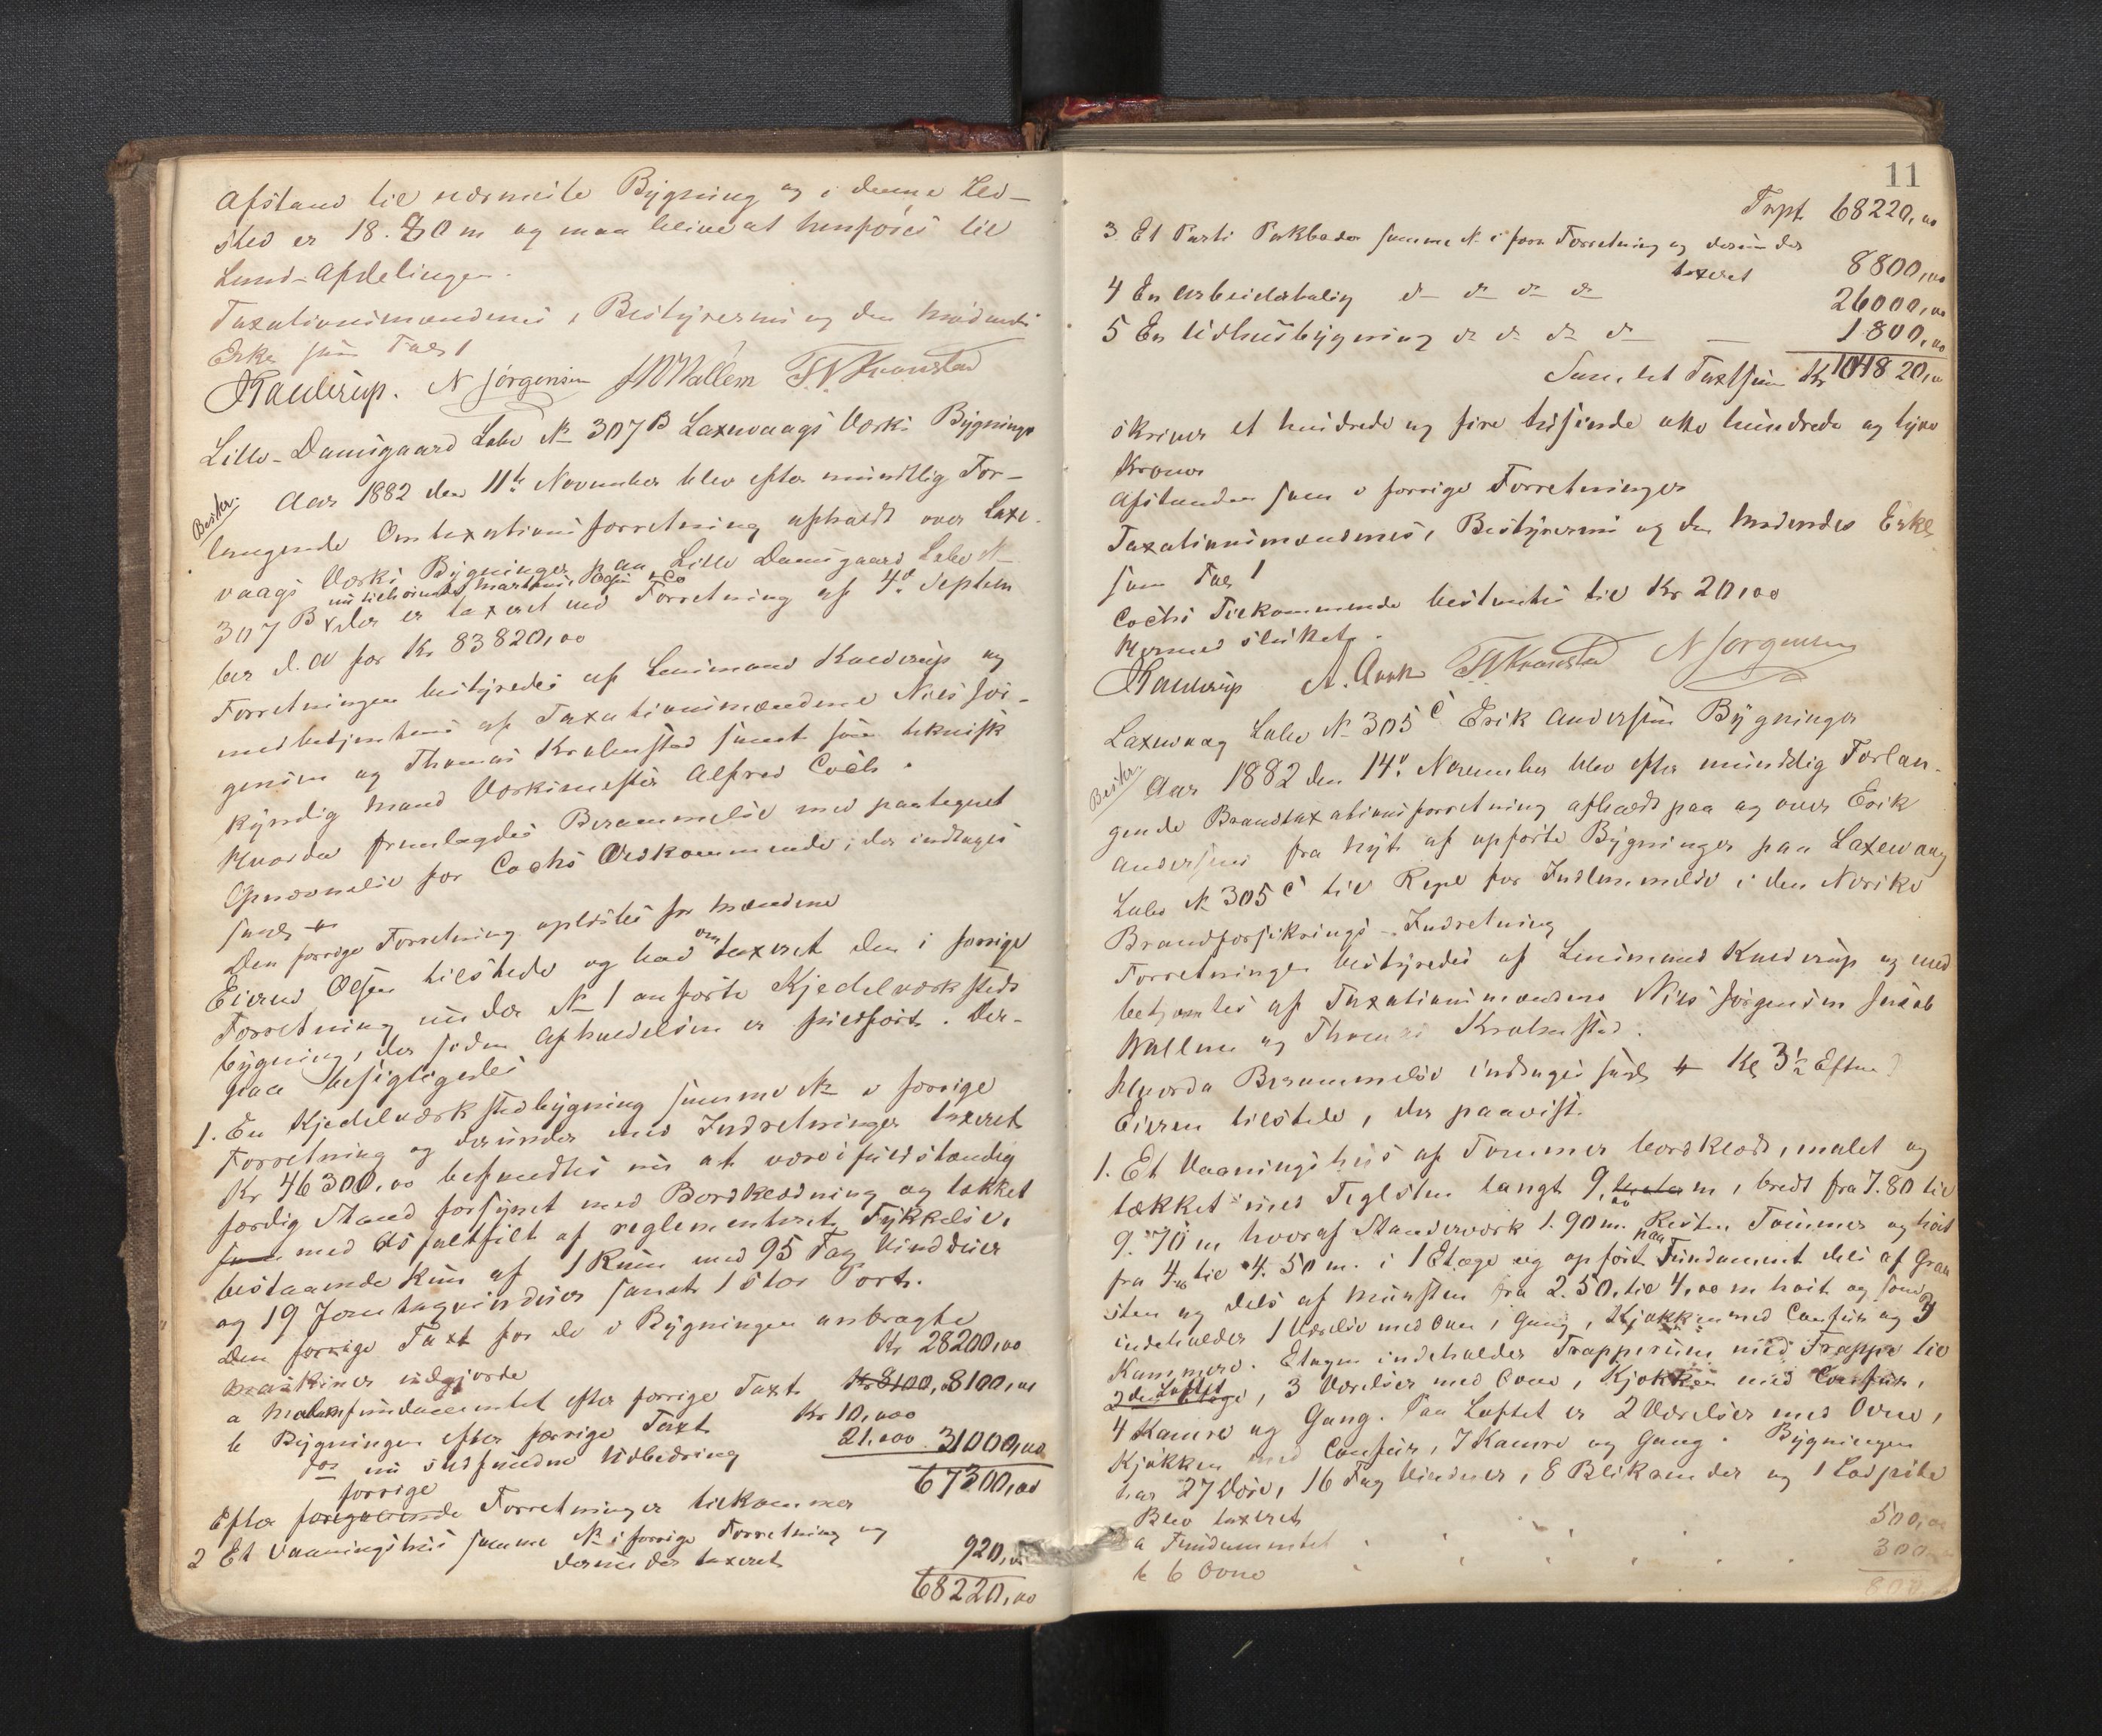 Afstand til nærmeste Bygning og i denne Led-
sted er 18.80 m og maa blive at henføres til
Land-Afdelingen.
Taxationsmændenes, Bestyrerens og den mødende
Enke som Tael
Kaulerup. N Jørgensen JWWallem TNKvamstad
Lille-Damsgaard Løbe No 307 B Laxevaags Værks Bygninger
Besker.
Aar 1882 den 11te November blev efter mundtlig For-
langende Omtaxationsforretning afholdt over Laxe-
vaags Værks Bygninger paa Lille Damsgaard Løbe No
nu tilhørende Martens, & Co
307 B x der er taxeret ved Forretning af 4de Septem
ber d. A for Kr 83820,00
Forretningen bestyredes af Lensmand Kaulerup og
medbetjentes af Taxationsmændene Niels Jør-
gensen og Thomas Kvalmstad samt som teknisk
kyndig Mand Værkmester Alfred Coch.
Hvorda fremlagdes Berammelse med paategnet
Opnævnelse for Cochs Vedkommende, der indtages
saal
Den forrige Forretning oplæstes for Mændene
Eierne Olsen tilstede og bad om taxeret den i forrige
Forretning under No 1 anførte Kjedelværksteds
bygning, der siden Afholdelsen er fuldført. Der-
paa besigtigedes
1. En Kjedelværkstedbygning samme No i forrige
Forretning og derunder med Indretninger taxeret
Kr 46300,00 befandtes nu at være i fuldstændig
færdig Stand forsynet med Bordklædning og tækket
med Asfaltfilt af reglementeret Tykkelse,
bestaaende kun af 1 Rum med 95 Fag Vinduer
og 19 Jerntagvinduer samt 1 stor Port.
Den forrige Taxt for de i Bygningen anbragte
Maskiner udgjorde Kr 28200,00
a Murfundamentet efter forrige Taxt Kr 8100, 8100,00
b Bygningen efter forrige Taxt Kr 10,000
for nu stedfunden Udbedring 21,000 31000,00
67300,00
forrige
Efter foregaaende Forretninger tilkommer
2 Et Vaaningshus samme No i forrige Forretning og
derunder taxeret 920,00
68220,00
11
Trpt 68220,00
3. Et Parti Pakboder samme No i forr Forretning og derunder
taxeret 8800,00
4 En Arbeiderbolig do do do do 26000,00
5 En Udhusbygning do do do do — 1800,00
Samlet Taxtsum Kr 104820,00
skriver et hundrede og fire tusinde otte hundrede og tyve
Kroner
Afstanden som i forrige Forretninger
Taxationsmændenes, Bestyrerens og den Mødendes Enke
som Tael
Cochs Tilkommende bestemtes til Kr 20,00
Hermed sluttet.
Kaulerup A. Coch TNKvamstad N Jørgensen
Laxevaag Løbe No 305 C Erik Andersens Bygninger
Besker.
Aar 1882 den 14de November blev efter mundtlig Forlan-
gende Brandtaxationsforretning afholdt paa og over Erik
Andersens fra nyt af opførte Bygninger paa Laxevaag
Løbe No 305 C til Regel for Indlemmelse i den Norske
Brandforsikrings-Indretning
Forretningen bestyredes af Lensmand Kaulerup og med
betjentes af Taxationsmændene Niels Jørgensen Jacob
Wallem og Thomas Kvalmstad.
Hvorda Berammelse indtages saal Kl 3½ Efterm
Eieren tilstede, der paaviste.
1. Et Vaaningshus af Tømmer bordklædt, malet og
tækket med Teglsten langt 9,00 m, bredt fra 7.80 til
9.70 m hvoraf Standerværk 1.90 m. Resten Tømmer og høit
fra 4,00 til 4.50 m. i 1 Etage og opført paa Fundament dels af Graa
sten og dels af Mursten fra 2.50, til 4,00 m høit og som
indeholder 1 Værelse med Oven, Gang, Kjøkken med Comfur og 3
Kammere. Etagen indeholder Trapperum med Trappe til
Loftet
2den Etage, 3 Værelser med Ovne, Kjøkken med Comfur,
4 Kamre og Gang. Paa Loftet er 2 Værelser med Ovne,
Kjøkken med Comfur, 7 Kamre og Gang. Bygningen
har 27 Døre, 16 Fag Vinduer, 8 Blikrender og 1 Ladpibe
Blev taxeret
a Fundamentet 500,00
b 6 Ovne 300
800